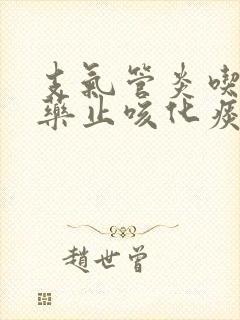 支氣管炎喫
藥止咳化痰
趙世曾